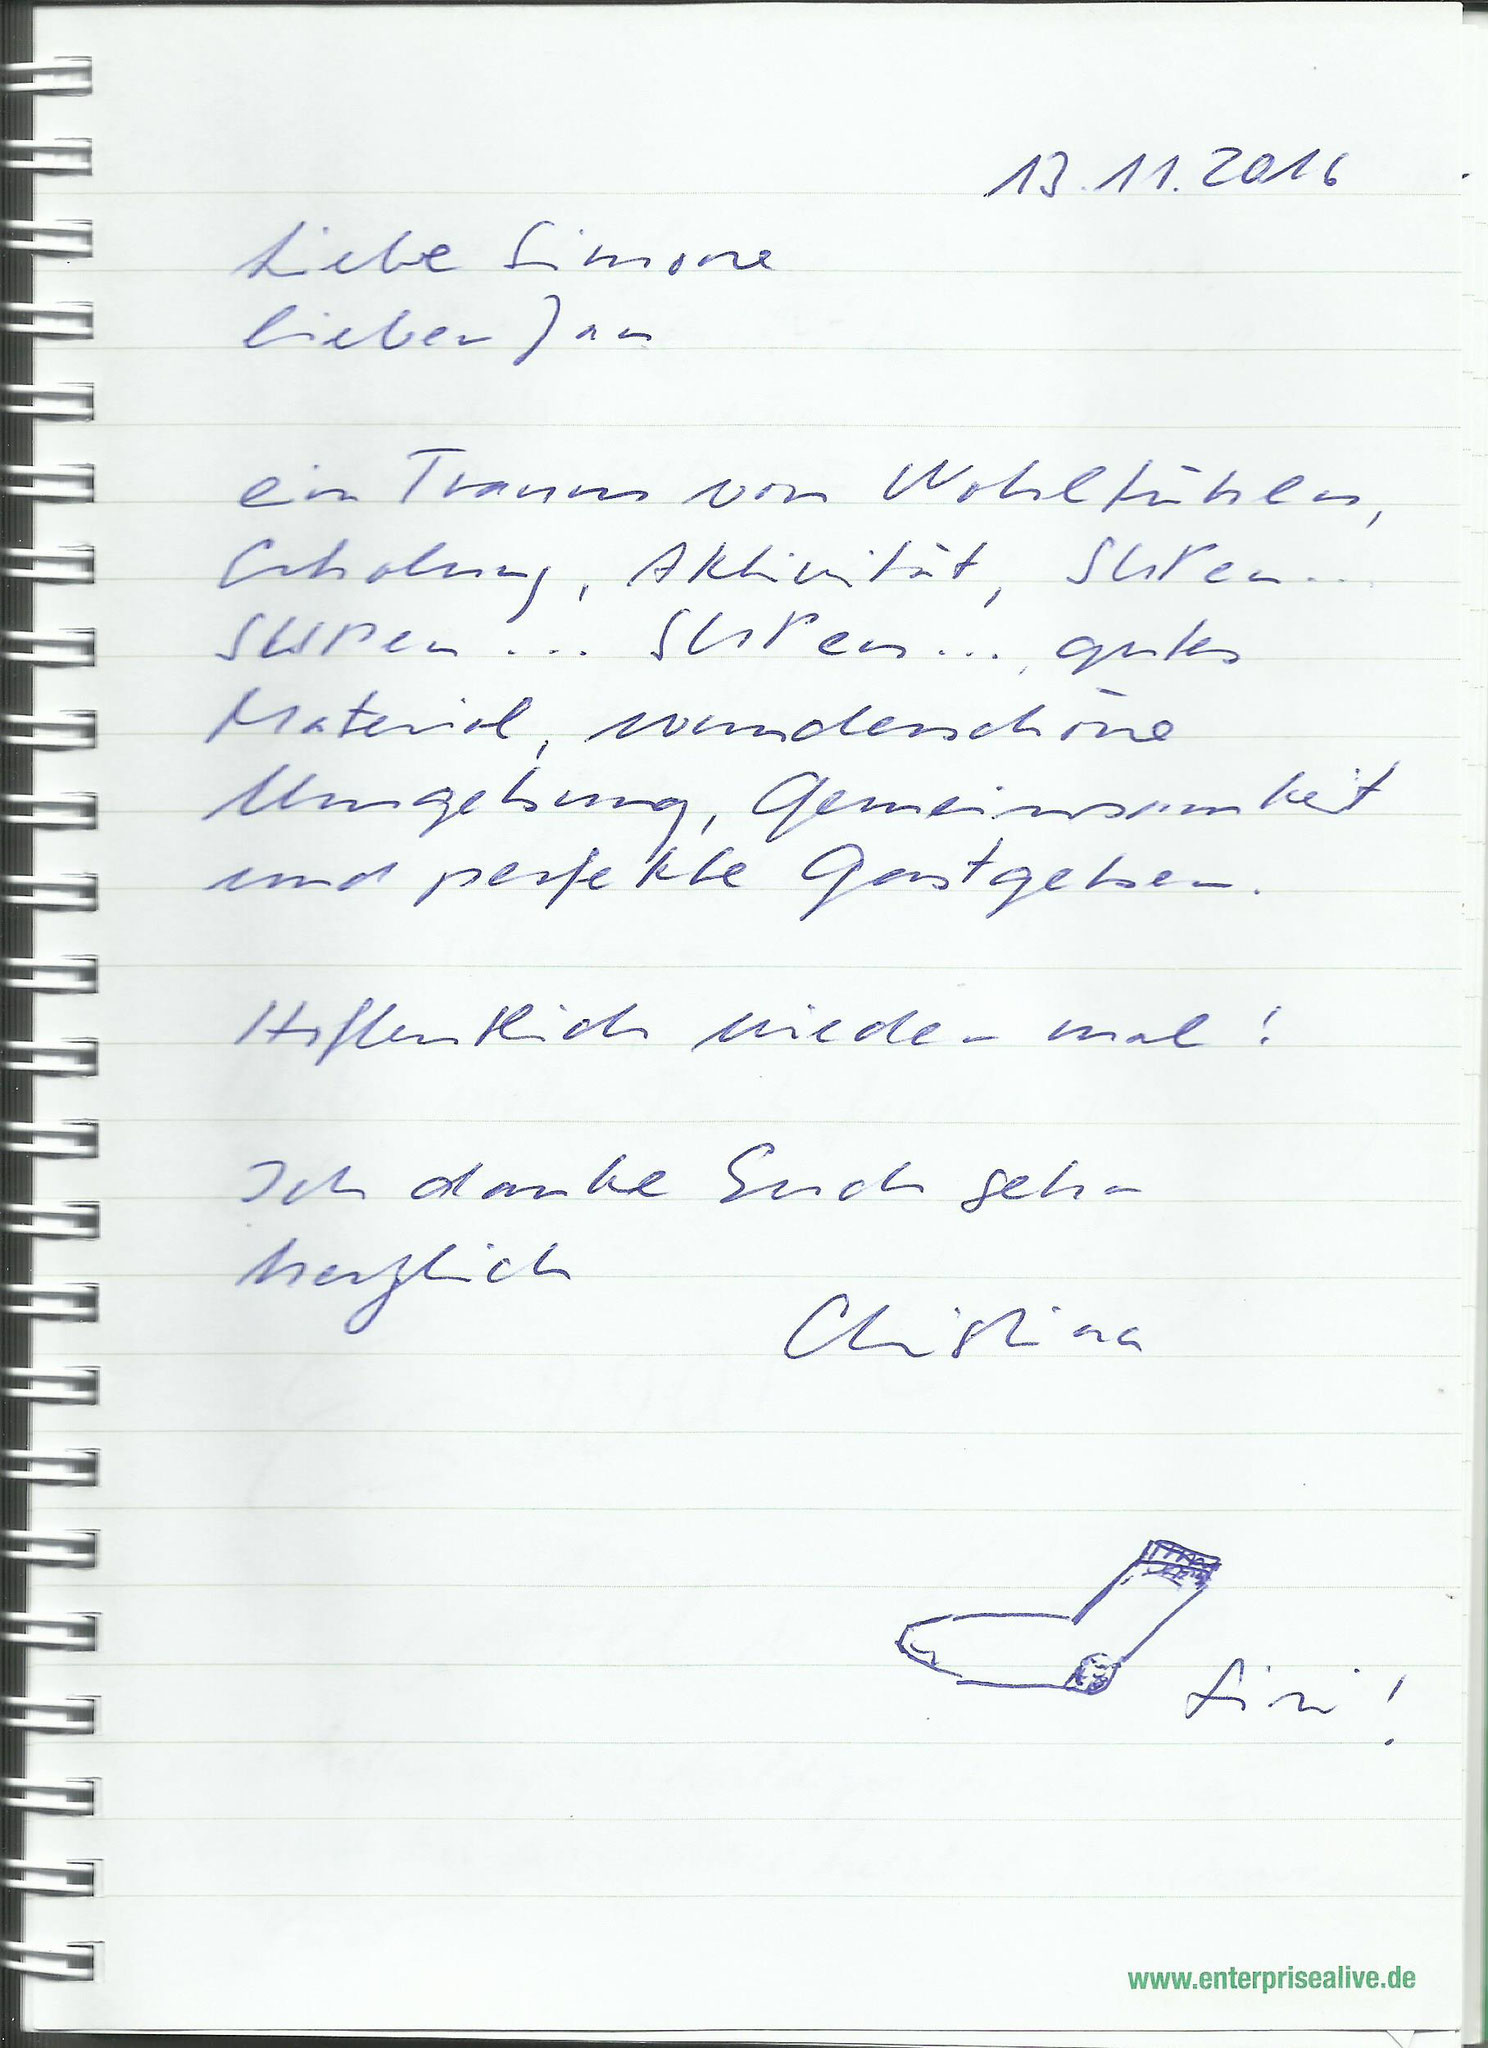 13.11.2016
Liebe Simone
lieber Jan
ein Traum von Wohlfühlen,
Erholung, Aktivität, SUPen...
SUPen ... SUPen ... gutes
Material, wunderschöne
Umgebung, Gemeinsamkeit
und perfekte Gastgeber.
Hoffentlich wieder mal!
Ich danke Euch sehr
herzlich
Christina
!
www.enterprisealive.de